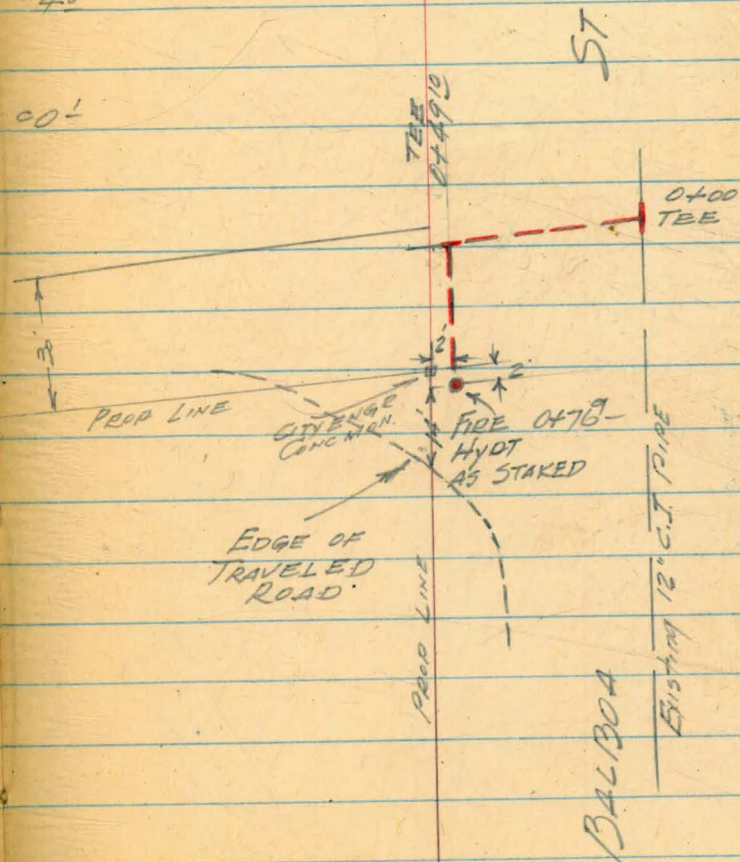 ST
TEE
0+49¹⁰
0+00
TEE
30'
2'
2'
PROP LINE
CITY ENGR
CONC MON.
14'
FIRE 0+76⁹
HYDT
AS STAKED
EDGE OF
TRAVELED
ROAD
PROP LINE
Existing 12" C.I. PIPE
BALBOA